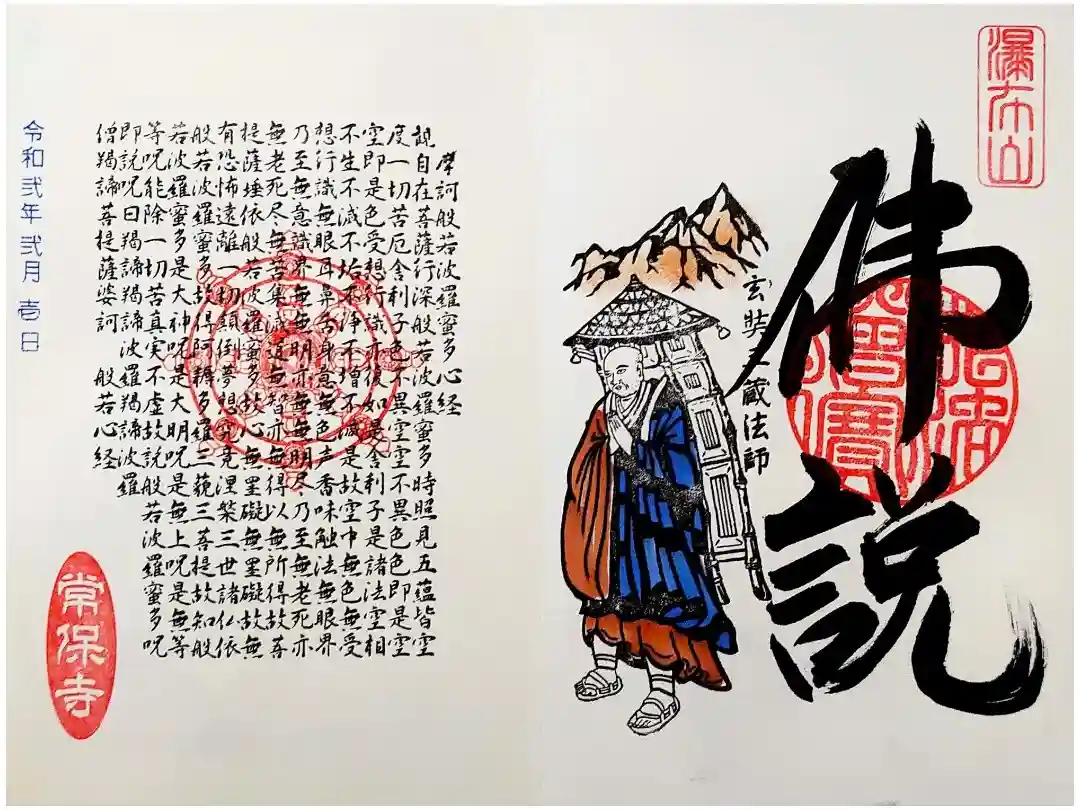 瀑布山
佛説
佛法僧寳
玄奘三蔵法師
摩訶般若波羅蜜多心経
観自在菩薩行深般若波羅蜜多時照見五蘊皆空
度一切苦厄舎利子色不異空空不異色色即是空
空即是色受想行識亦復如是舎利子是諸法空相
不生不滅不垢不浄不増不減是故空中無色無受
想行識無眼耳鼻舌身意無色声香味触法無眼界
乃至無意識界無無明亦無無明尽乃至無老死亦
無老死尽無苦集滅道無智亦無得以無所得故菩
提薩埵依般若波羅蜜多故心無罣礙無罣礙故無
有恐怖遠離一切顛倒夢想究竟涅槃三世諸仏依
般若波羅蜜多故得阿耨多羅三藐三菩提故知般
若波羅蜜多是大神呪是大明呪是無上呪是無等
等呪能除一切苦真実不虚故説般若波羅蜜多呪
即説呪曰羯諦羯諦波羅羯諦波羅
僧羯諦菩提薩婆訶 般若心経
令和弐年弐月壱日
常保寺